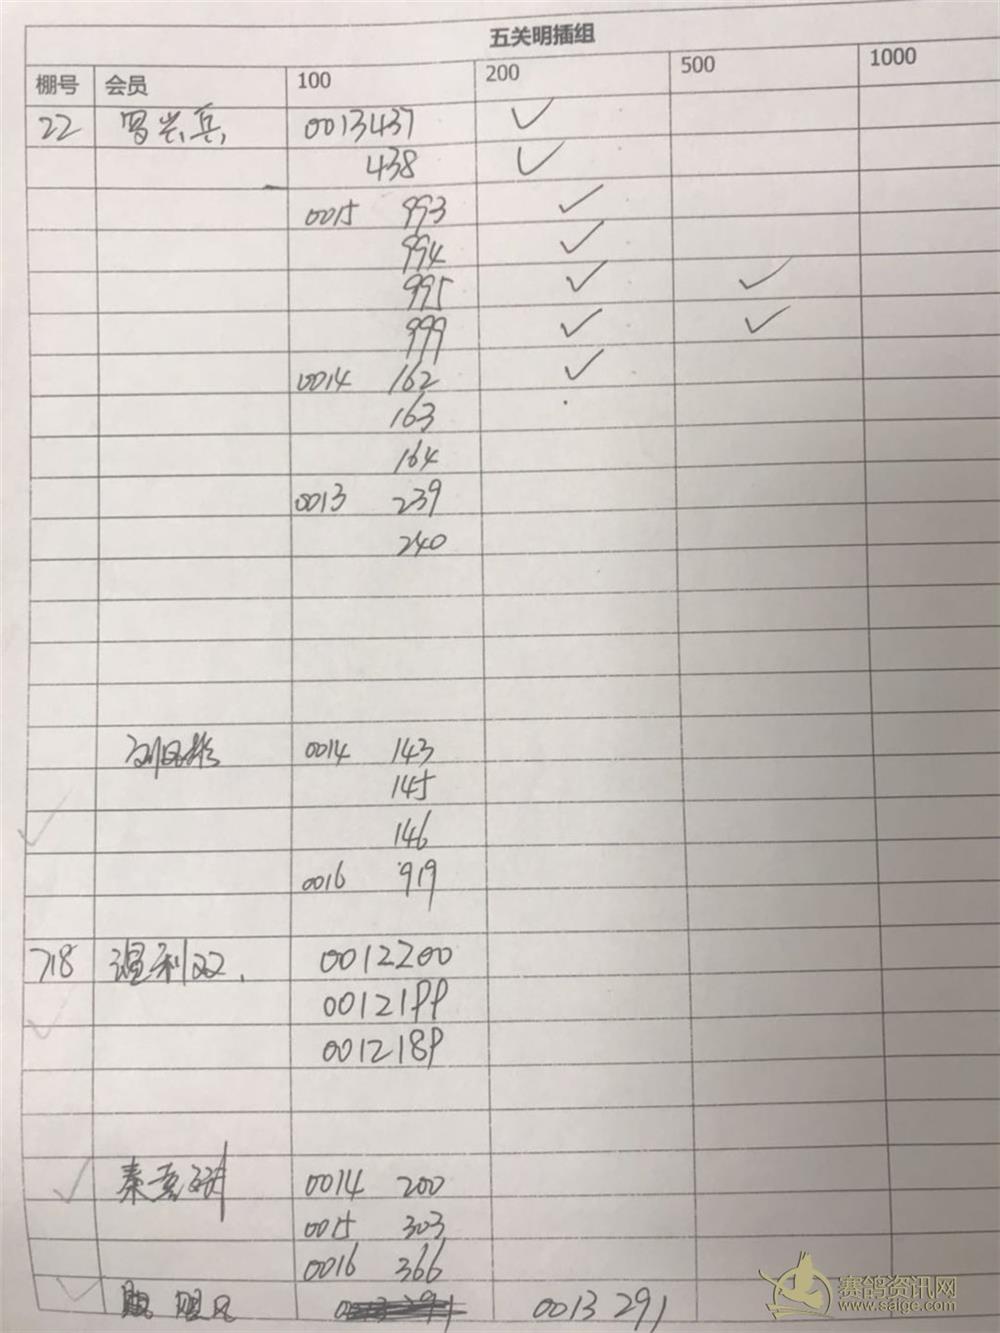 五关明插组
棚号 会员 100 200 500 1000
22 罗兴兵 0013437 ✓
438 ✓
0015 993 ✓
994 ✓
995 ✓ ✓
999 ✓ ✓
0014 162 ✓
163
164
0013 239
240
0014 143
145
146
0016 919
718 0012200
0012199
0012189
秦 0014 200
0015 303
0016 366
0013 291
赛鸽资讯网
www.saige.com